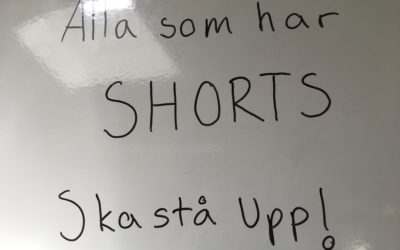 Alla som har
SHORTS
Ska stå Upp!